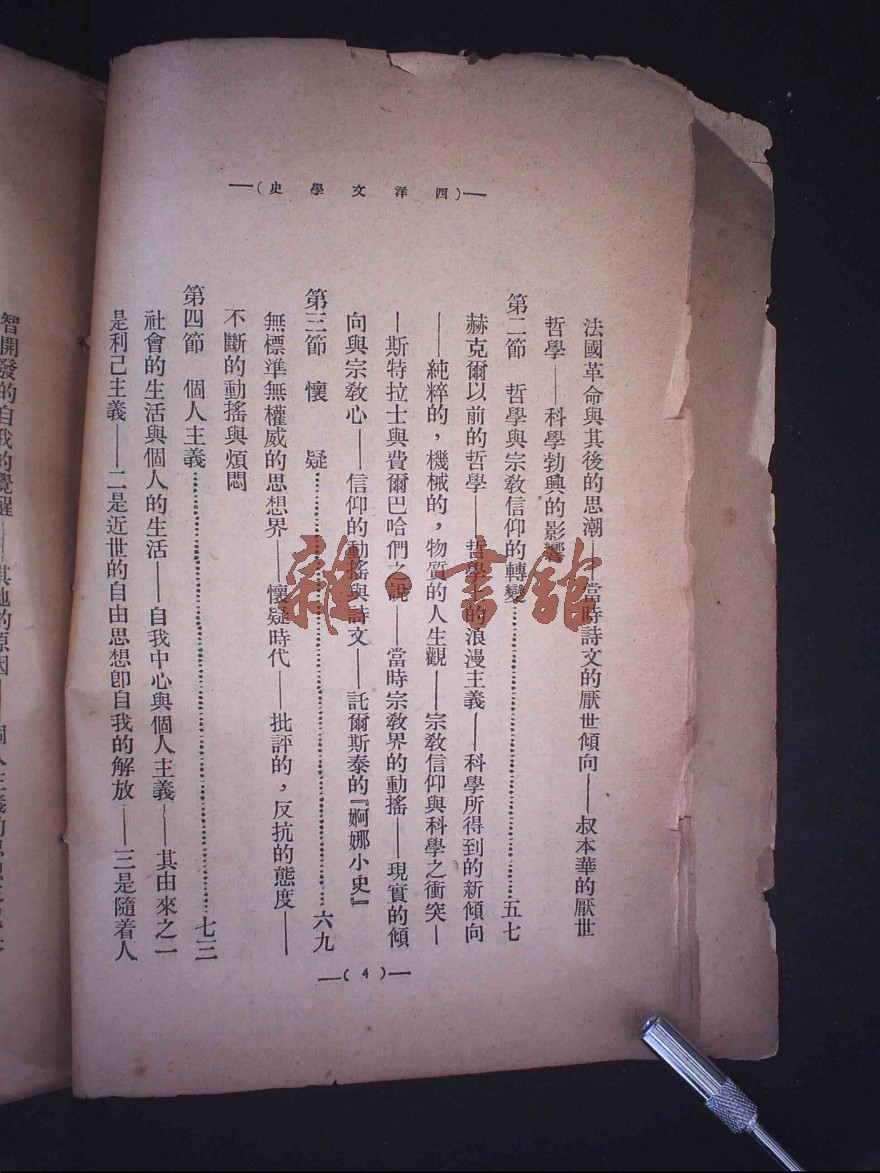 —(史學文洋四)—
法國革命與其後的思潮——當時詩文的厭世傾向——叔本華的厭世
哲學——科學勃興的影響
第二節　哲學與宗教信仰的轉變……………………五七
赫克爾以前的哲學——哲學的浪漫主義——科學所得到的新傾向
——純粹的，機械的，物質的人生觀——宗教信仰與科學之衝突—
—斯特拉士與費爾巴哈們之說——當時宗教界的動搖——現實的傾
向與宗教心——信仰的動搖與詩文——託爾斯泰的『婀娜小史』
第三節　懷　疑……………………六九
無標準無權威的思想界——懷疑時代——批評的，反抗的態度——
不斷的動搖與煩悶
第四節　個人主義……………………七三
社會的生活與個人的生活——自我中心與個人主義——其由來之一
是利己主義——二是近世的自由思想卽自我的解放——三是隨着人
—(4)—
智開發的自我的覺醒——其他的原因——
雜·書館